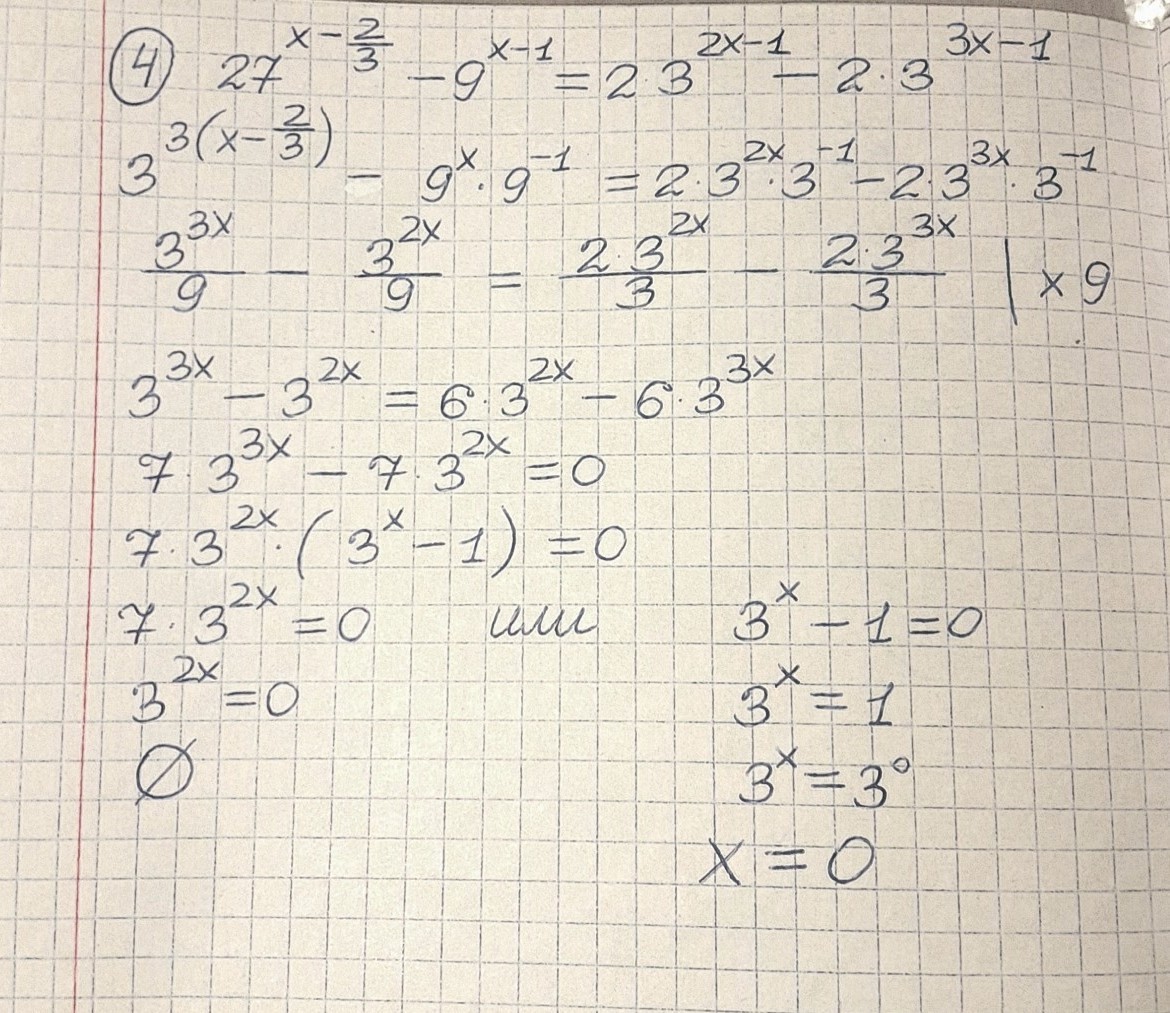 ④ 27^(x-2/3) - 9^(x-1) = 2·3^(2x-1) - 2·3^(3x-1)
3^(3(x-2/3)) - 9^x·9^(-1) = 2·3^(2x)·3^(-1) - 2·3^(3x)·3^(-1)
3^(3x)/9 - 3^(2x)/9 = 2·3^(2x)/3 - 2·3^(3x)/3 | x 9
3^(3x) - 3^(2x) = 6·3^(2x) - 6·3^(3x)
7·3^(3x) - 7·3^(2x) = 0
7·3^(2x)·(3^x - 1) = 0
7·3^(2x) = 0 или 3^x - 1 = 0
3^(2x) = 0 3^x = 1
∅ 3^x = 3^0
x = 0